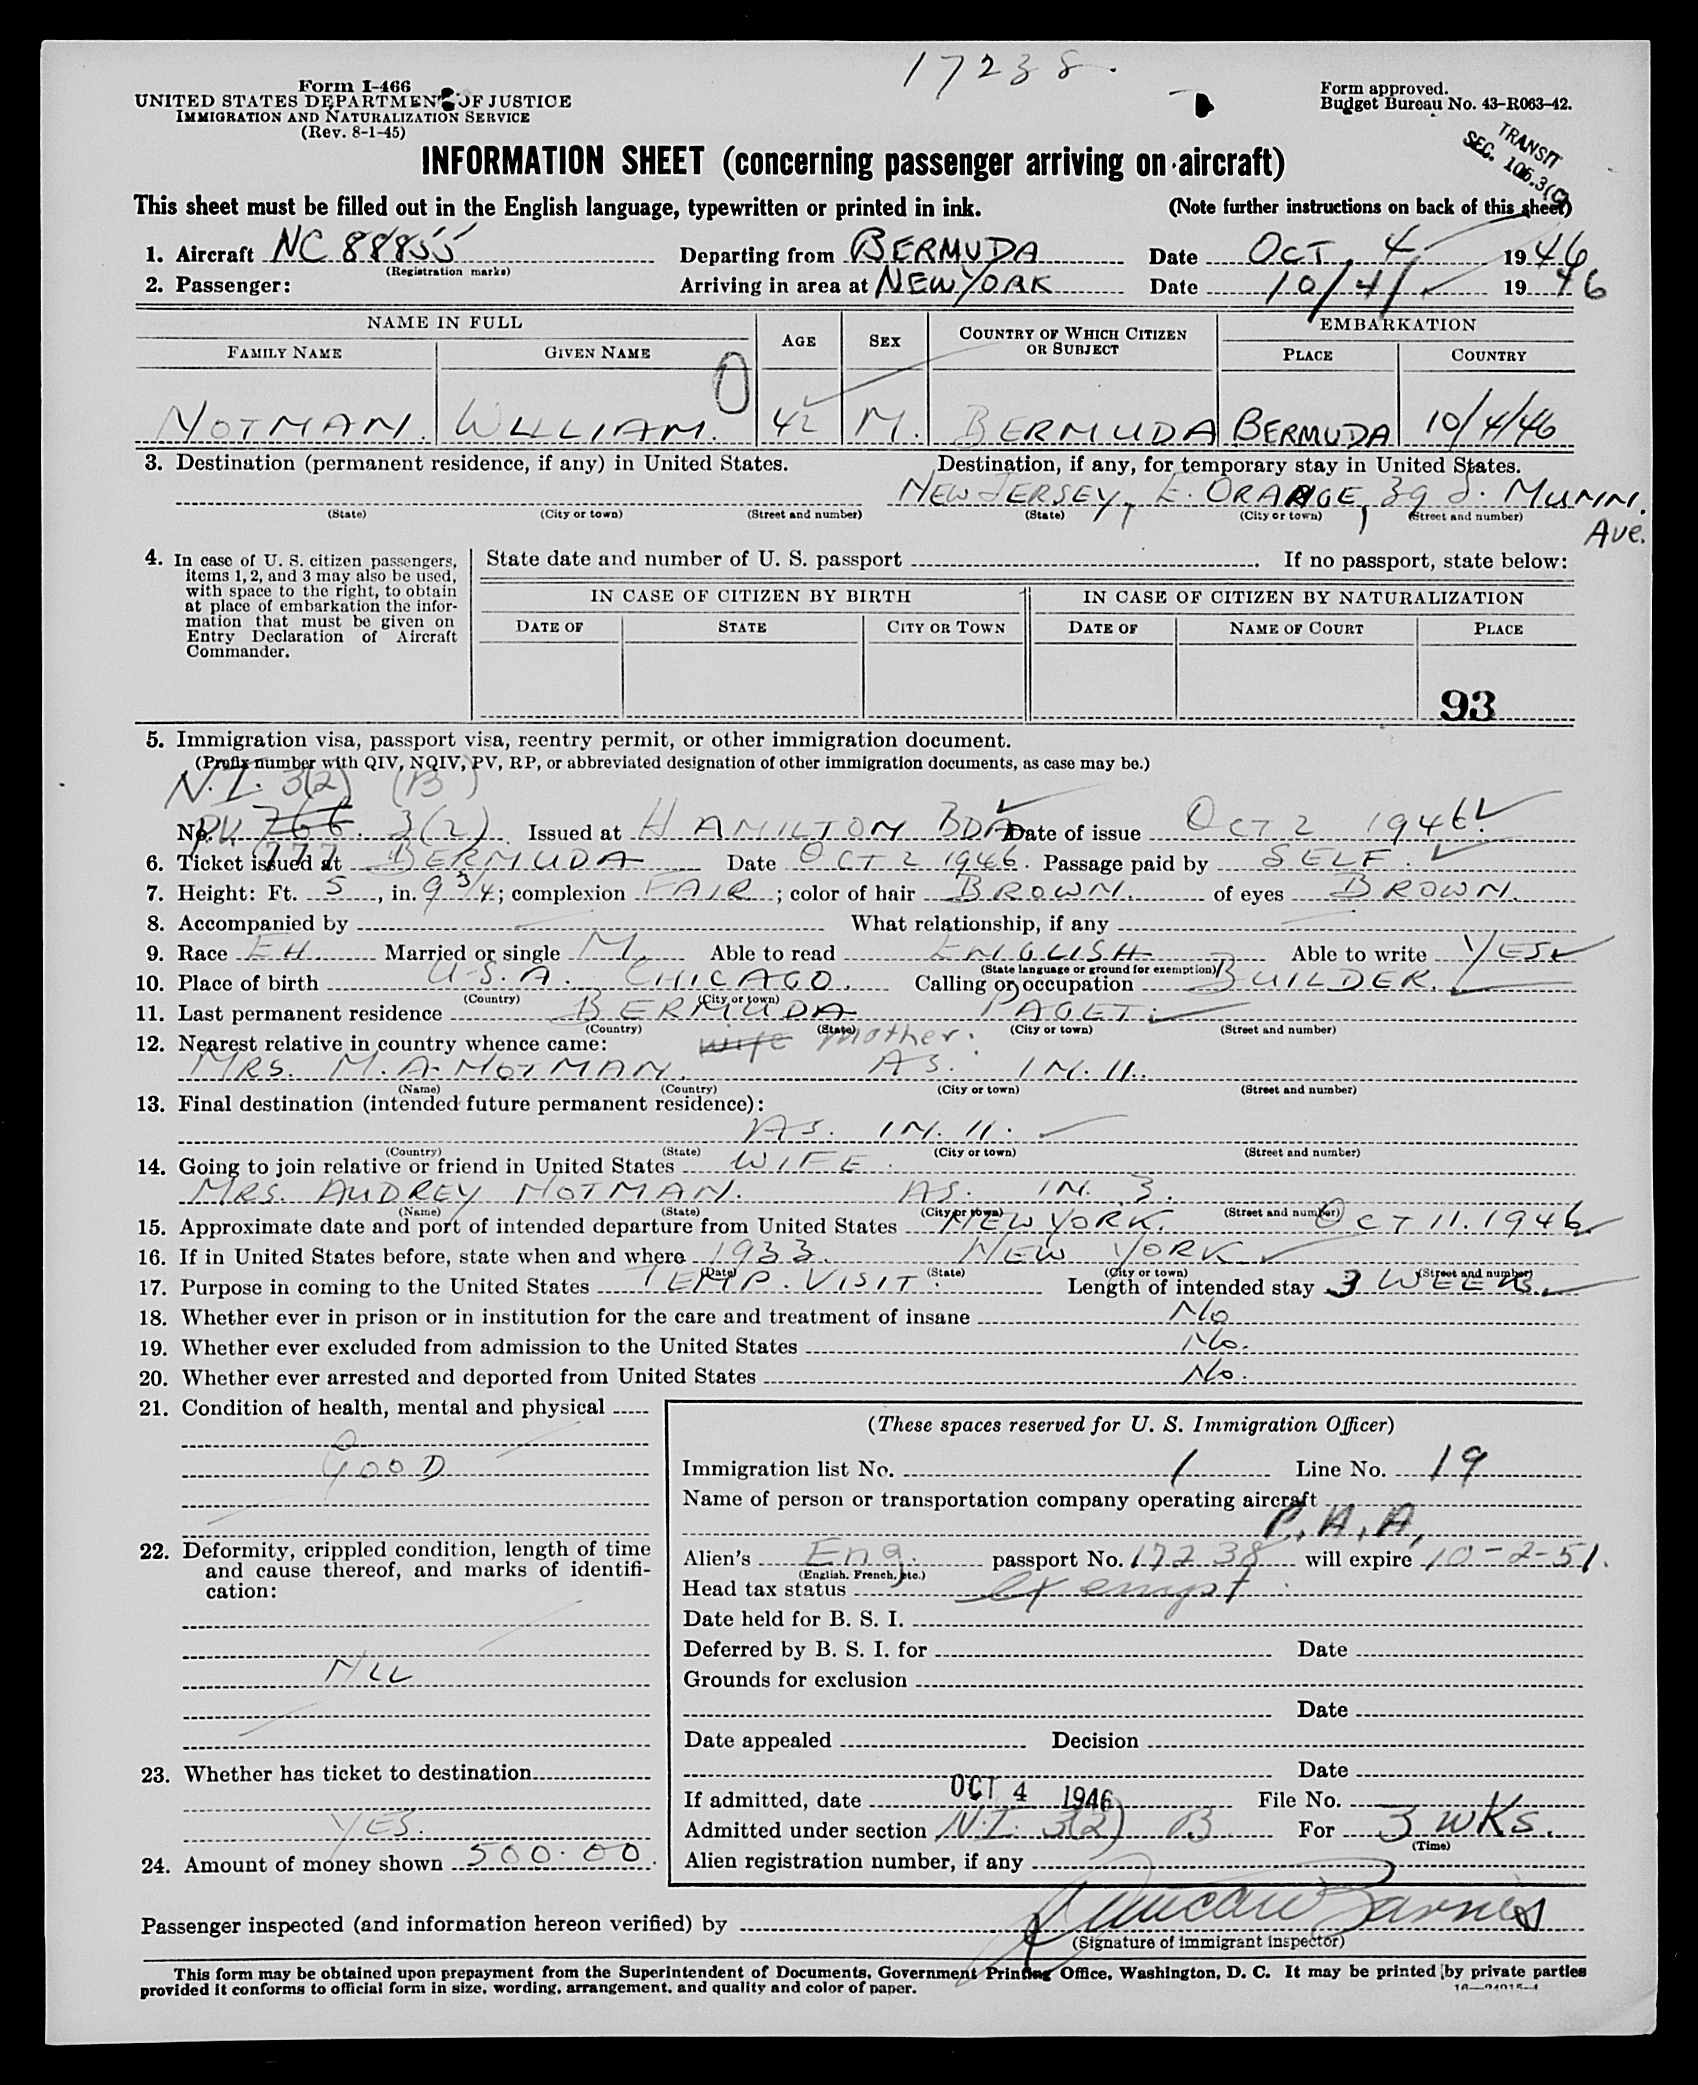 17238.
Form I-466
UNITED STATES DEPARTMENT OF JUSTICE
IMMIGRATION AND NATURALIZATION SERVICE
(Rev. 8-1-45)
Form approved.
Budget Bureau No. 43-R063-42.
TRANSIT
SEC. 105.3(
INFORMATION SHEET (concerning passenger arriving on aircraft)
This sheet must be filled out in the English language, typewritten or printed in ink. (Note further instructions on back of this sheet)
1. Aircraft NC 88855 Departing from BERMUDA Date OCT. 4 1946
(Registration marks)
2. Passenger: Arriving in area at NEW YORK Date 10/4/ 1946
NAME IN FULL AGE SEX COUNTRY OF WHICH CITIZEN OR SUBJECT EMBARKATION
FAMILY NAME GIVEN NAME PLACE COUNTRY
NOTMAN. WILLIAM. 42 M. BERMUDA BERMUDA 10/4/46
3. Destination (permanent residence, if any) in United States. Destination, if any, for temporary stay in United States.
NEW JERSEY, E. ORANGE, 39 S. MUNN.
(State) (City or town) (Street and number) (State) (City or town) (Street and number)
Ave.
4. In case of U. S. citizen passengers, items 1, 2, and 3 may also be used, with space to the right, to obtain at place of embarkation the information that must be given on Entry Declaration of Aircraft Commander.
State date and number of U. S. passport If no passport, state below:
IN CASE OF CITIZEN BY BIRTH IN CASE OF CITIZEN BY NATURALIZATION
DATE OF STATE CITY OR TOWN DATE OF NAME OF COURT PLACE
93
5. Immigration visa, passport visa, reentry permit, or other immigration document.
(Prefix number with QIV, NQIV, PV, RP, or abbreviated designation of other immigration documents, as case may be.)
N.I. 3(2) (B)
No. P.V. 766. 3(2) Issued at HAMILTON BDA Date of issue OCT 2 1946.
777
6. Ticket issued at BERMUDA Date OCT 2 1946. Passage paid by SELF.
7. Height: Ft. 5, in. 9 3/4; complexion FAIR; color of hair BROWN. of eyes BROWN.
8. Accompanied by What relationship, if any
9. Race EH. Married or single M. Able to read ENGLISH Able to write YES
(State language or ground for exemption)
10. Place of birth U.S.A. CHICAGO. Calling or occupation BUILDER.
(Country) (City or town)
11. Last permanent residence BERMUDA PAGET.
(Country) (State) (City or town) (Street and number)
12. Nearest relative in country whence came: wife mother.
MRS. M. A. NOTMAN. AS. IN. 11.
(Name) (Country) (City or town) (Street and number)
13. Final destination (intended future permanent residence):
AS. IN. 11.
(Country) (State) (City or town) (Street and number)
14. Going to join relative or friend in United States WIFE.
MRS. AUDREY NOTMAN. AS. IN. 3.
(Name) (State) (City or town) (Street and number)
15. Approximate date and port of intended departure from United States NEW YORK. OCT 11. 1946
16. If in United States before, state when and where 1933. NEW YORK
(Date) (State) (City or town) (Street and number)
17. Purpose in coming to the United States TEMP. VISIT. Length of intended stay 3 WEEKS.
18. Whether ever in prison or in institution for the care and treatment of insane No
19. Whether ever excluded from admission to the United States No.
20. Whether ever arrested and deported from United States No.
21. Condition of health, mental and physical
GOOD
22. Deformity, crippled condition, length of time and cause thereof, and marks of identification:
NIL
23. Whether has ticket to destination
YES.
24. Amount of money shown 500.00
(These spaces reserved for U. S. Immigration Officer)
Immigration list No. 1 Line No. 19
Name of person or transportation company operating aircraft
P.A.A.
Alien's Eng. passport No. 17238 will expire 10-2-51.
(English, French, etc.)
Head tax status exempt
Date held for B. S. I.
Deferred by B. S. I. for Date
Grounds for exclusion
Date
Date appealed Decision
Date
If admitted, date OCT 4 1946 File No.
Admitted under section N.I. 3(2) B For 3 WKS.
(Time)
Alien registration number, if any
Passenger inspected (and information hereon verified) by Duncan Barnes
(Signature of immigrant inspector)
This form may be obtained upon prepayment from the Superintendent of Documents, Government Printing Office, Washington, D. C. It may be printed by private parties
provided it conforms to official form in size, wording, arrangement, and quality and color of paper.